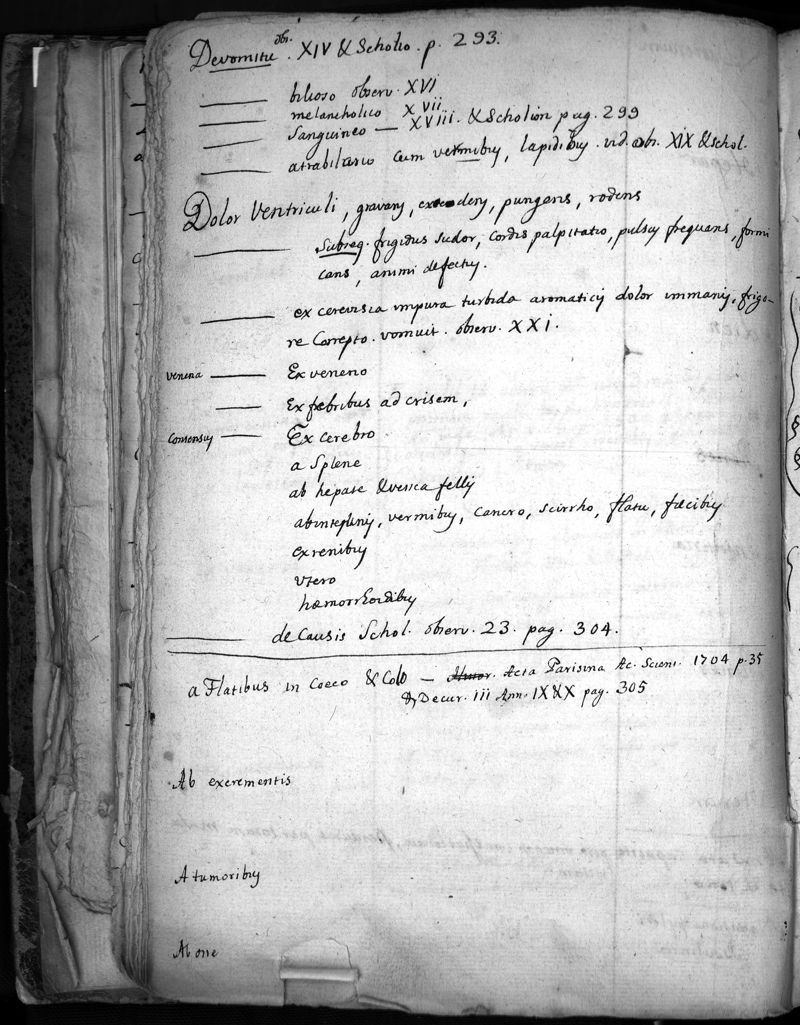 De vomitu obs. XIV & Scholio. p. 293.
bilioso observ. XVI
melancholico XVII
Sanguineo — XVIII. & Scholion pag. 299
atrabilario cum vermibus, lapidibus. vid. obs. XIX & schol.
Dolor Ventriculi, gravans, extendens, pungens, rodens
Subseq. frigidus sudor, cordis palpitatio, pulsus frequens, formi
cans, animi defectus.
ex cerevisia impura turbida aromaticis dolor immanis, frigo-
re correpto. vomuit. observ. XXI.
venena — Ex veneno
Ex febribus ad crisem,
Consensus — Ex cerebro.
a Splene
ab hepate & vesica fellis
ab intestinis, vermibus, cancro, scirrho, flatu, fæcibus
ex renibus
utero
hæmorrhoidibus
de Causis Schol. observ. 23. pag. 304.
a Flatibus in Coeco & Colo — Acta Parisina Ac. Scient. 1704 p. 35
& Decur. III Ann. IX & X pag. 305
Ab excrementis
A tumoribus